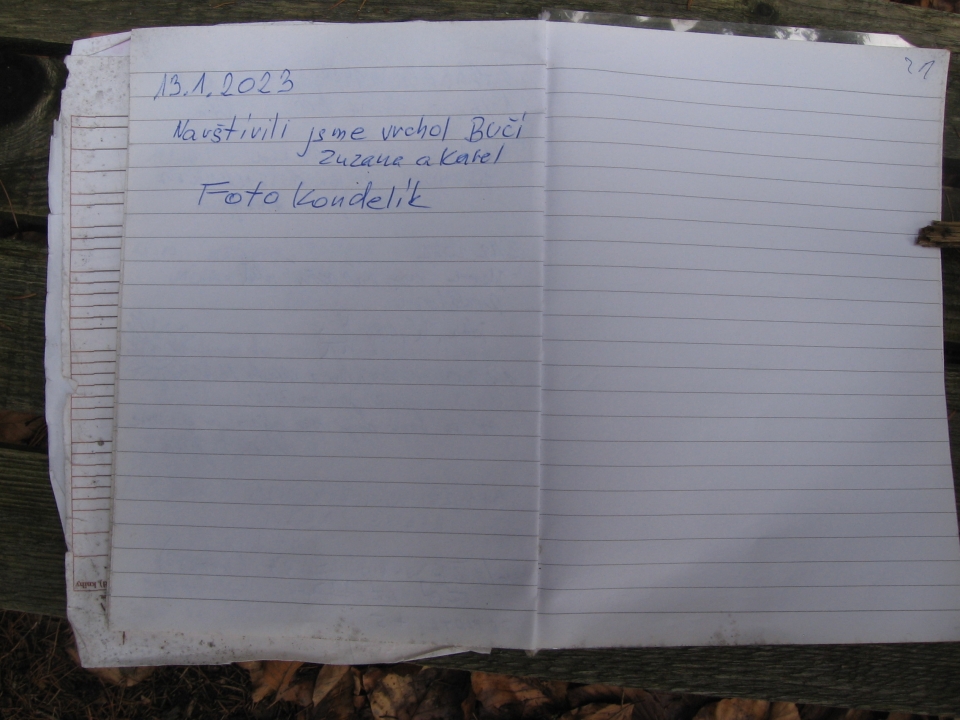 13.1.2023
Navštívili jsme vrchol Bučí
Zuzana a Karel
Foto Kondelík
21